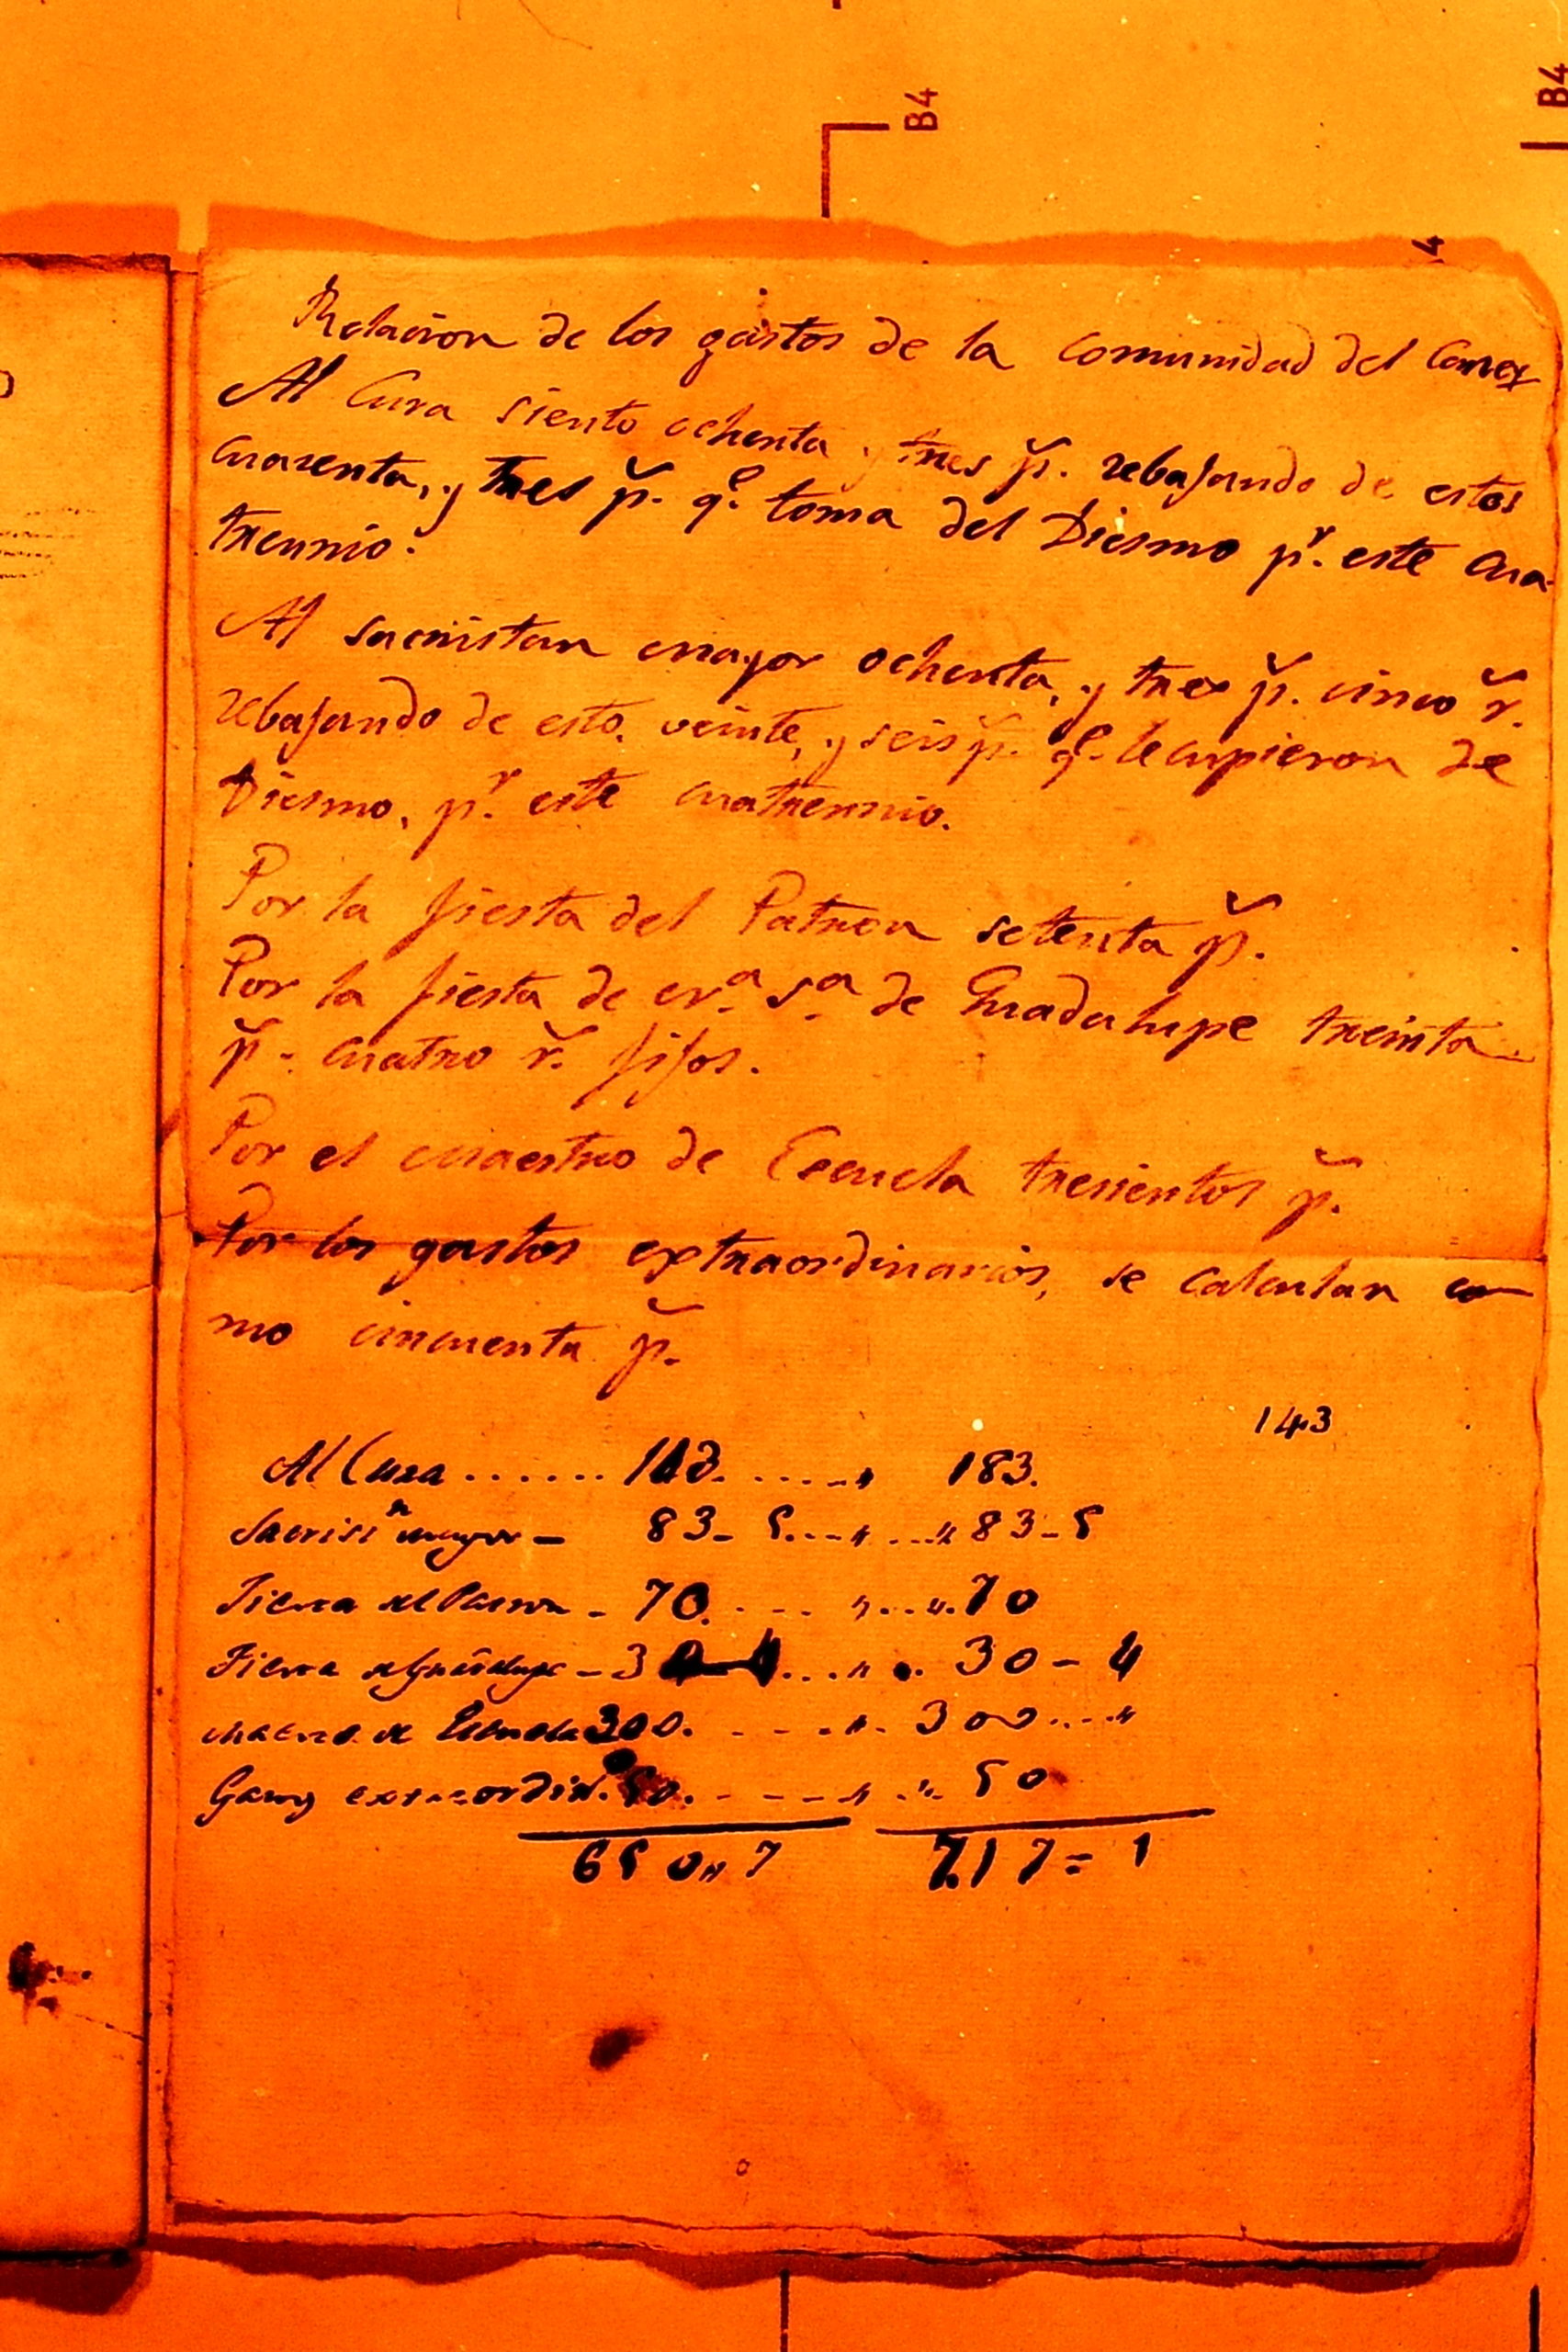 B4
B4
4
Relacion de los gastos de la comunidad del
Al Cura siento ochenta y tres p.^s rebajando de estos
cuarenta, y tres p.^s q.^e toma del Diesmo p.^r este cua
trennio.
Al sacristan mayor ochenta, y tres p.^s cinco r.^s
rebajando de esto. veinte, y seis p.^s q.^e le cupieron de
Diesmo, p.^r este cuatrennio.
Por la fiesta del Patron setenta p.^s
Por la fiesta de N.^a S.^a de Guadalupe treinta
p.^s cuatro r.^s fijos.
Por el maestro de Escuela tresientos p.^s
Por los gastos extraordinarios, se calculan co
mo cincuenta p.^s
143
Al Cura ...... 143. ....." 183.
Sacrist^n mayor - 83- 5...." ...." 83-5
Fiesta del Patron - 70. ..... "....". 70
Fiesta de Guadalupe - 30-4 ...." . 30-4
Maestro de Escuela 300. ....". 300...."
Gastos extraordin.^s 50. ....." ." 50
650" 7 717= 1